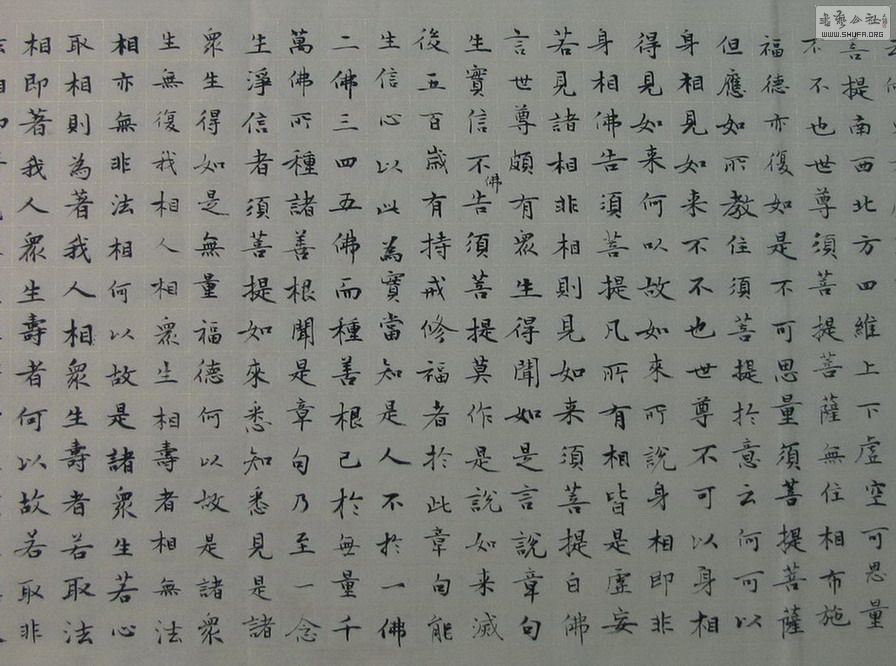 菩提南西北方四維上下虛空可思量
不不也世尊須菩提菩薩無住相布施
福德亦復如是不可思量須菩提菩薩
但應如所教住須菩提於意云何可以
身相見如来不不也世尊不可以身相
得見如来何以故如来所說身相即非
身相佛告須菩提凡所有相皆是虛妄
若見諸相非相則見如来須菩提白佛
言世尊頗有眾生得聞如是言說章句
生實信不佛告須菩提莫作是說如来滅
後五百歲有持戒修福者於此章句能
生信心以此為實當知是人不於一佛
二佛三四五佛而種善根已於無量千
萬佛所種諸善根聞是章句乃至一念
生淨信者須菩提如來悉知悉見是諸
眾生得如是無量福德何以故是諸眾
生無復我相人相眾生相壽者相無法
相亦無非法相何以故是諸眾生若心
取相則為著我人相眾生壽者若取法
相即著我人眾生壽者何以故若取非
WWW.SHUFA.ORG